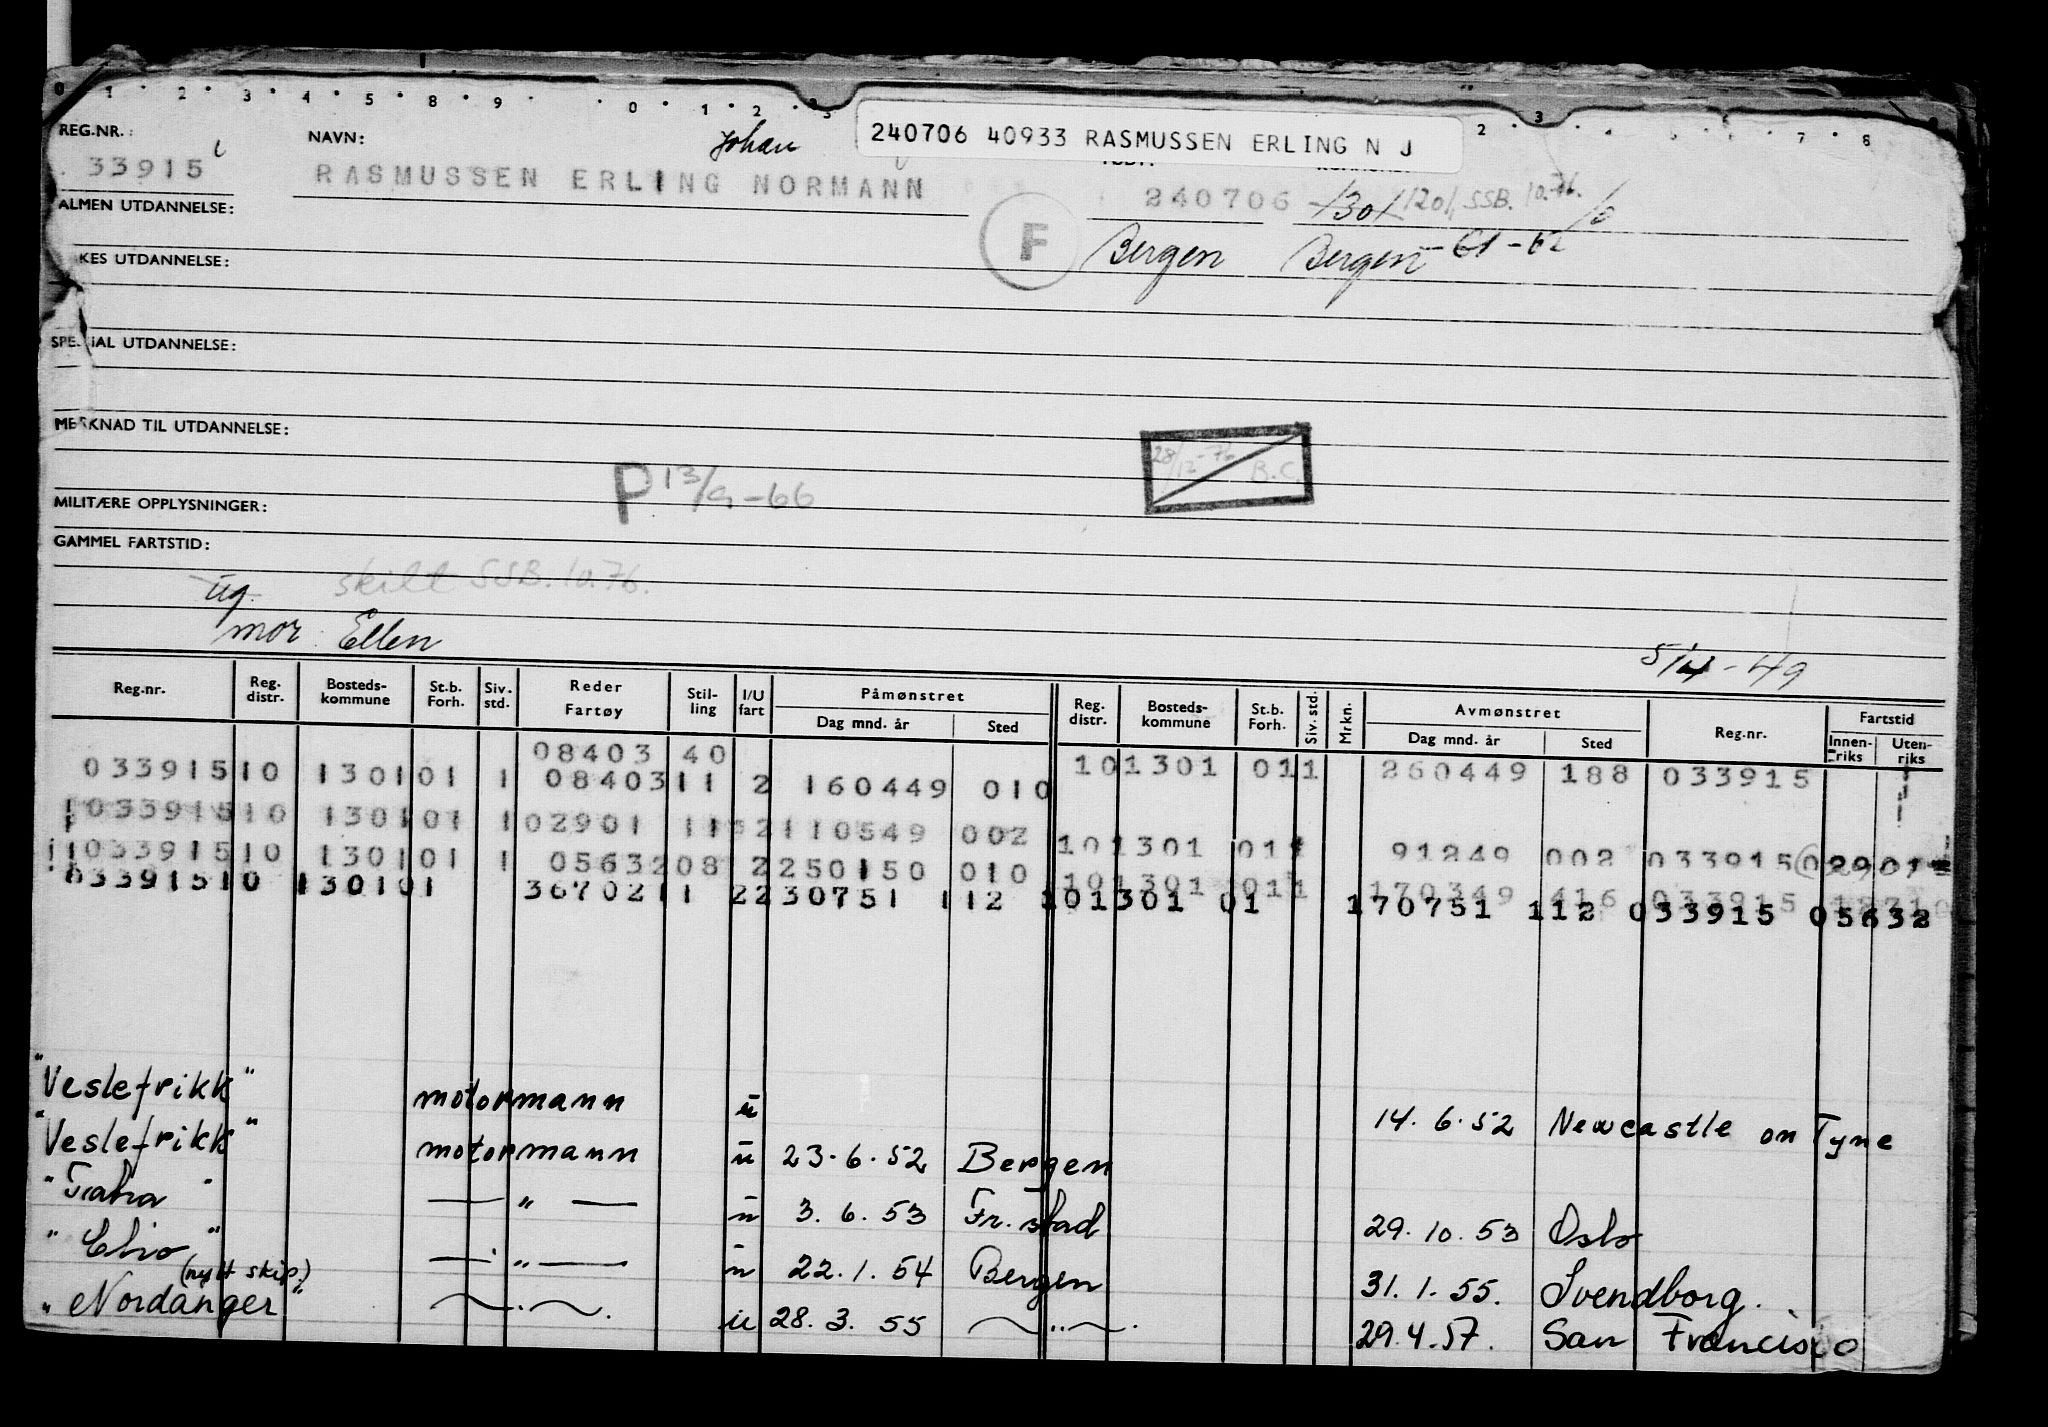 0 1 2 3 4 5 8 9 0 1 2 3 2 3 4 6 7 8
REG.NR. : NAVN: Johan 240706 40933 RASMUSSEN ERLING N J
33915 RASMUSSEN ERLING NORMANN 240706 1301 1201, SSB. 10.76.
ALMEN UTDANNELSE: F Bergen Bergen - 61-62
KES UTDANNELSE:
SPESIAL UTDANNELSE:
MERKNAD TIL UTDANNELSE:
28/12-76 B.C.
P 13/9-66
MILITÆRE OPPLYSNINGER:
GAMMEL FARTSTID:
ug. skilt SSB. 10.76.
mor: Ellen
5/4-49
Reg.nr. Reg. distr. Bosteds-kommune St.b. Forh. Siv. std. Reder Fartøy Stil-ling I/U fart Påmønstret Reg. distr. Bosteds-kommune St.b. Forh. Siv. std. Mrkn. Avmønstret Reg.nr. Fartstid
Dag mnd. år Sted Dag mnd. år Sted Innen-riks Uten-riks
08403 40
033915 10 1301 01 1 08403 11 2 160449 010 10 1301 01 1 260449 188 033915
033915 10 1301 01 1 02901 11 2 110549 002 10 1301 01 1 91249 002 033915 02901
033915 10 1301 01 1 05632 08 2 250150 010 10 1301 01 1 170349 416 033915
033915 10 1301 01 36702 11 2 230751 112 101301 01 170751 112 033915 05632
"Veslefrikk" motormann u 14.6.52 Newcastle on Tyne
"Veslefrikk" motormann u 23.6.52 Bergen
" " — " — u 3.6.53 Fr.stad 29.10.53 Oslo
"Clio" — " — u 22.1.54 Bergen 31.1.55. Svendborg.
(nytt skip)
"Nordanger" — " — u 28.3.55 — " — 29.4.57. San Francisco